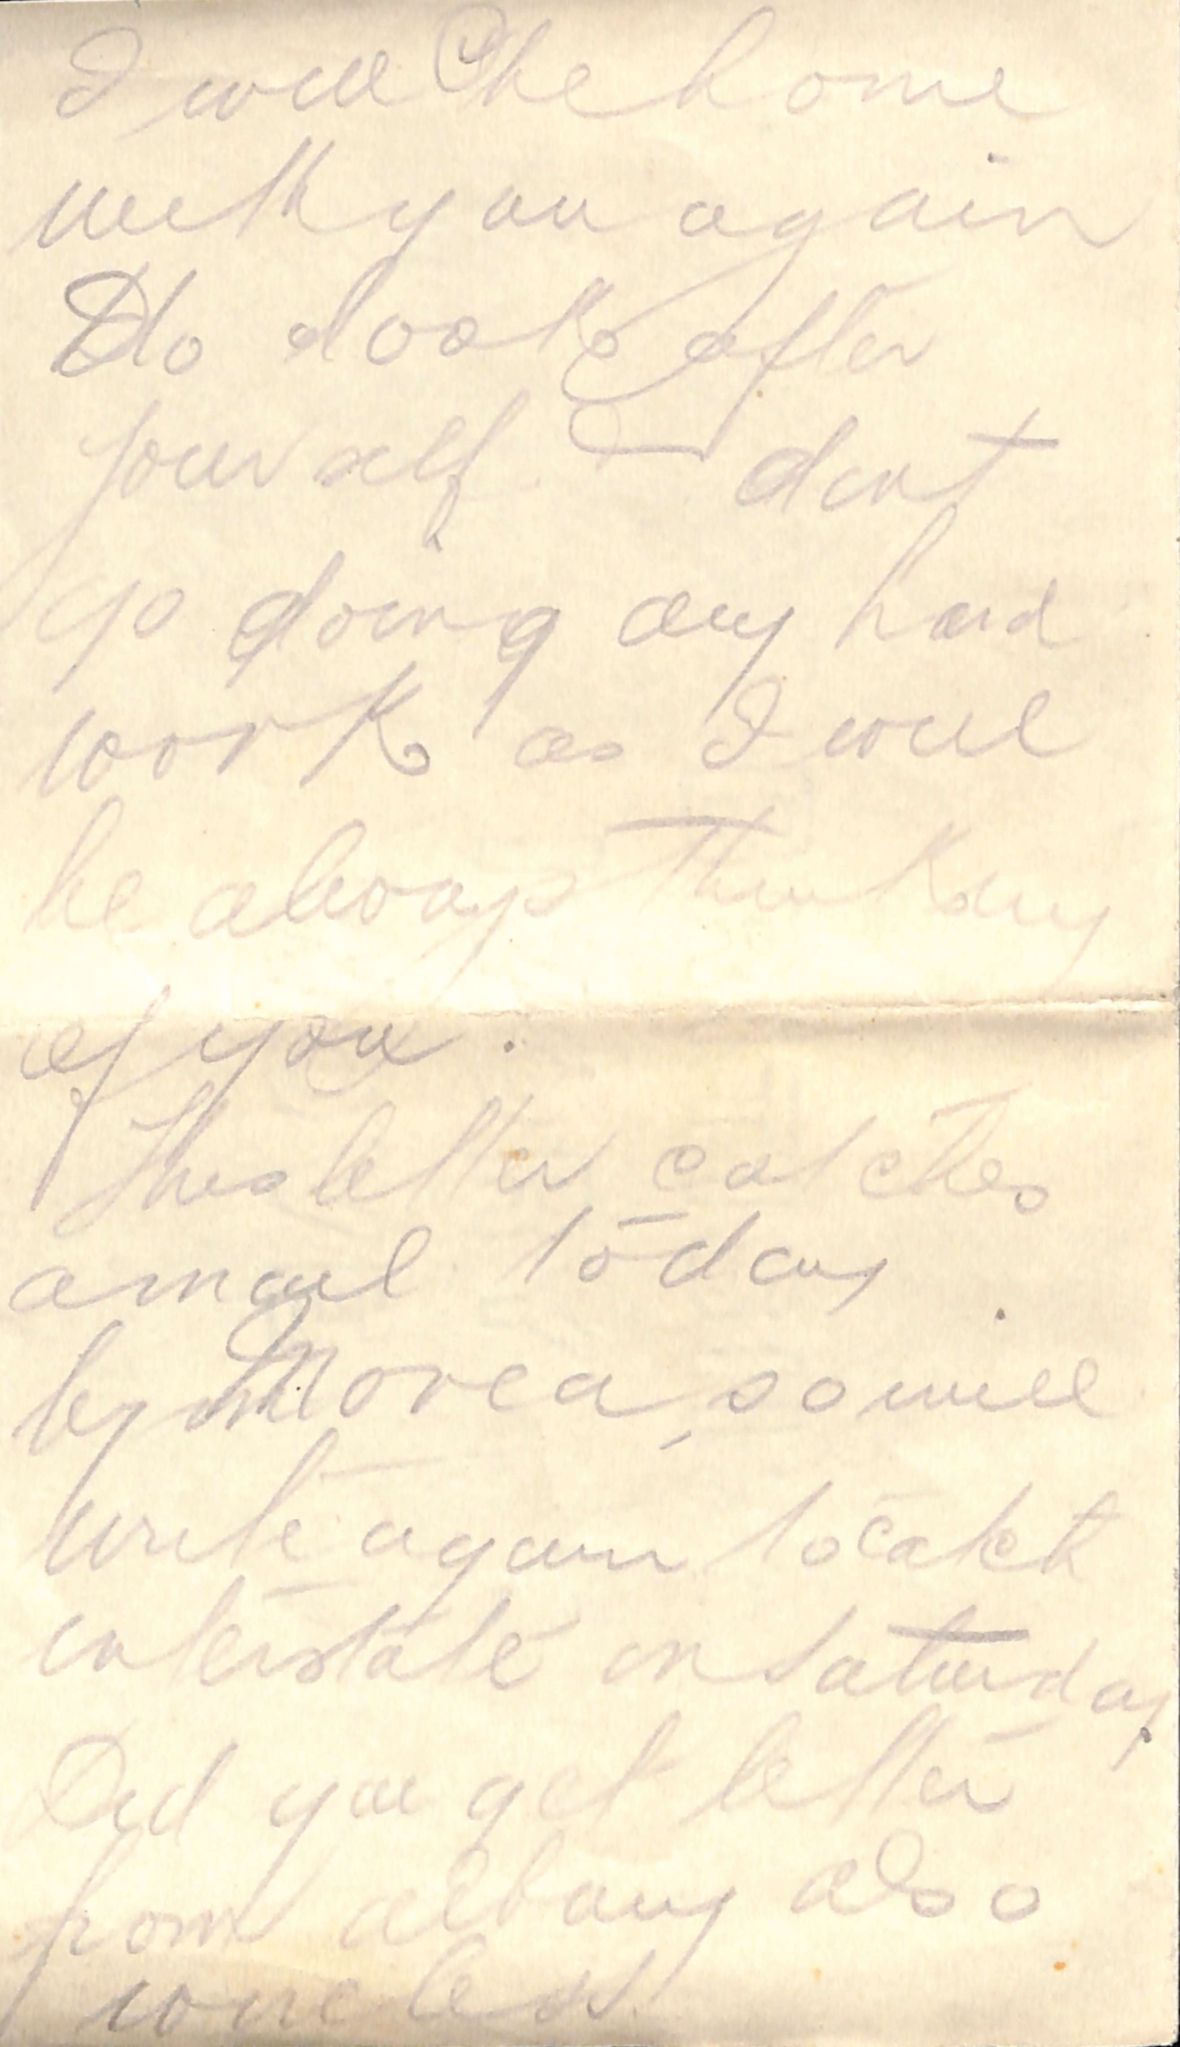 I will be home
with you again
Do look after
yourself & dont
go doing any hard
work as I will
be always thinking
of you.
This letter catches
a mail today
by Morea, so will
write again to catch
interstate on Saturday.
Did you get letter
from Albany also
wireless